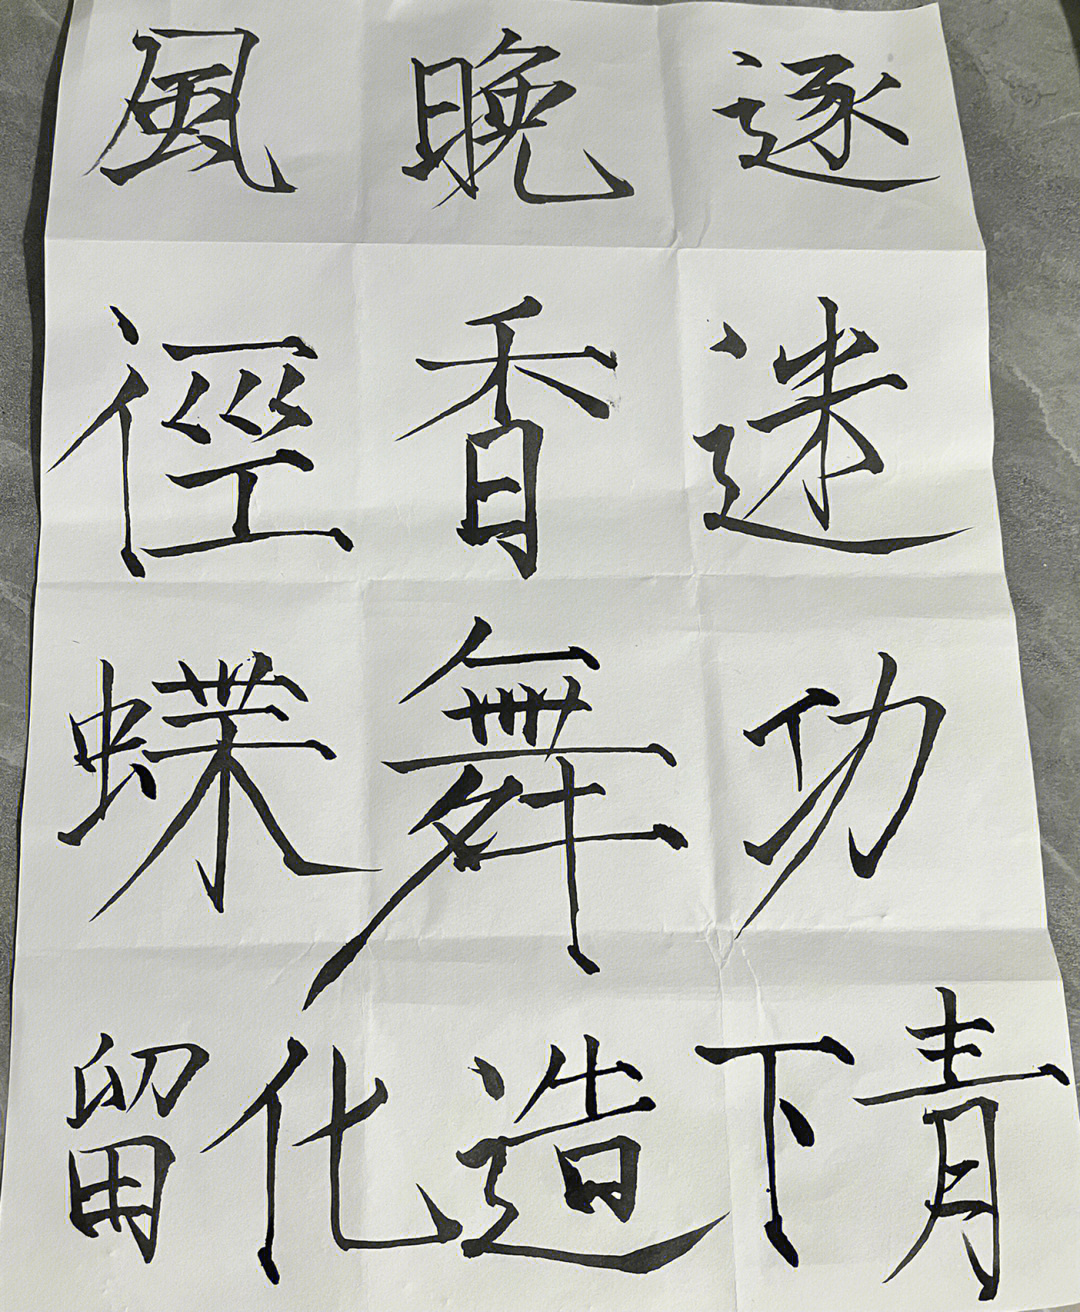 逐晚風
迷香徑
功舞蝶
青下造化留